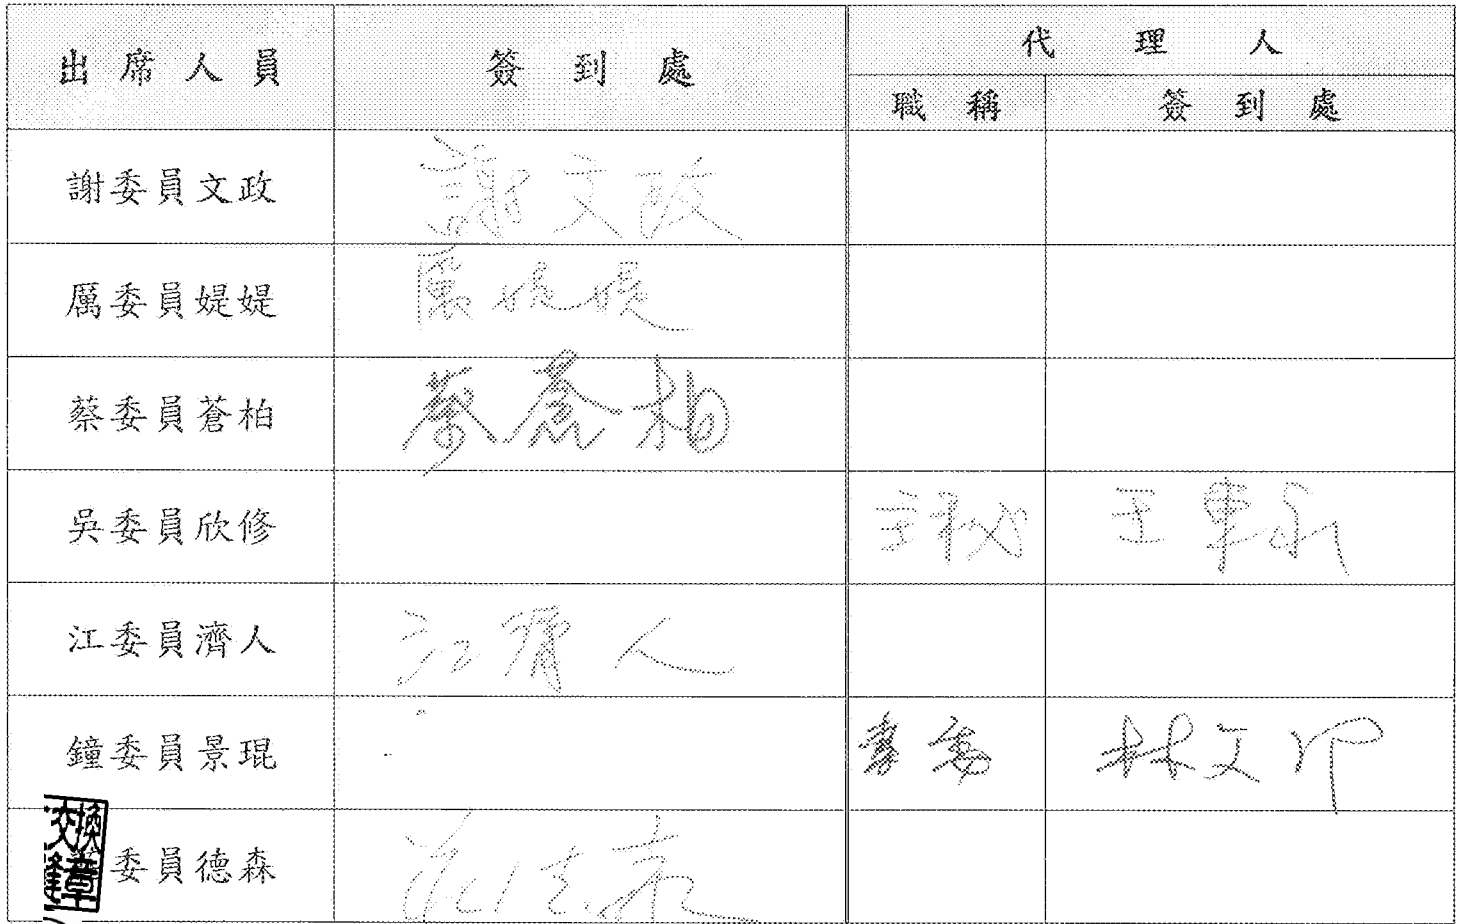 出席人員 簽到處 代理人
職稱 簽到處
謝委員文政 謝文政
厲委員媞媞 厲媞媞
蔡委員蒼柏 蔡蒼柏
吳委員欣修 主秘 王東永
江委員濟人 江濟人
鐘委員景琨 林文
委員德森
交換章